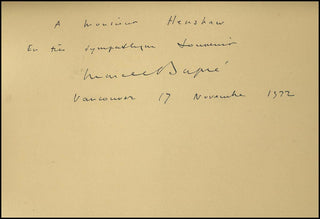 A Monsieur Henshaw
En très sympathique Souvenir
Marcel Dupré
Vancouver 17 Novembre 1922